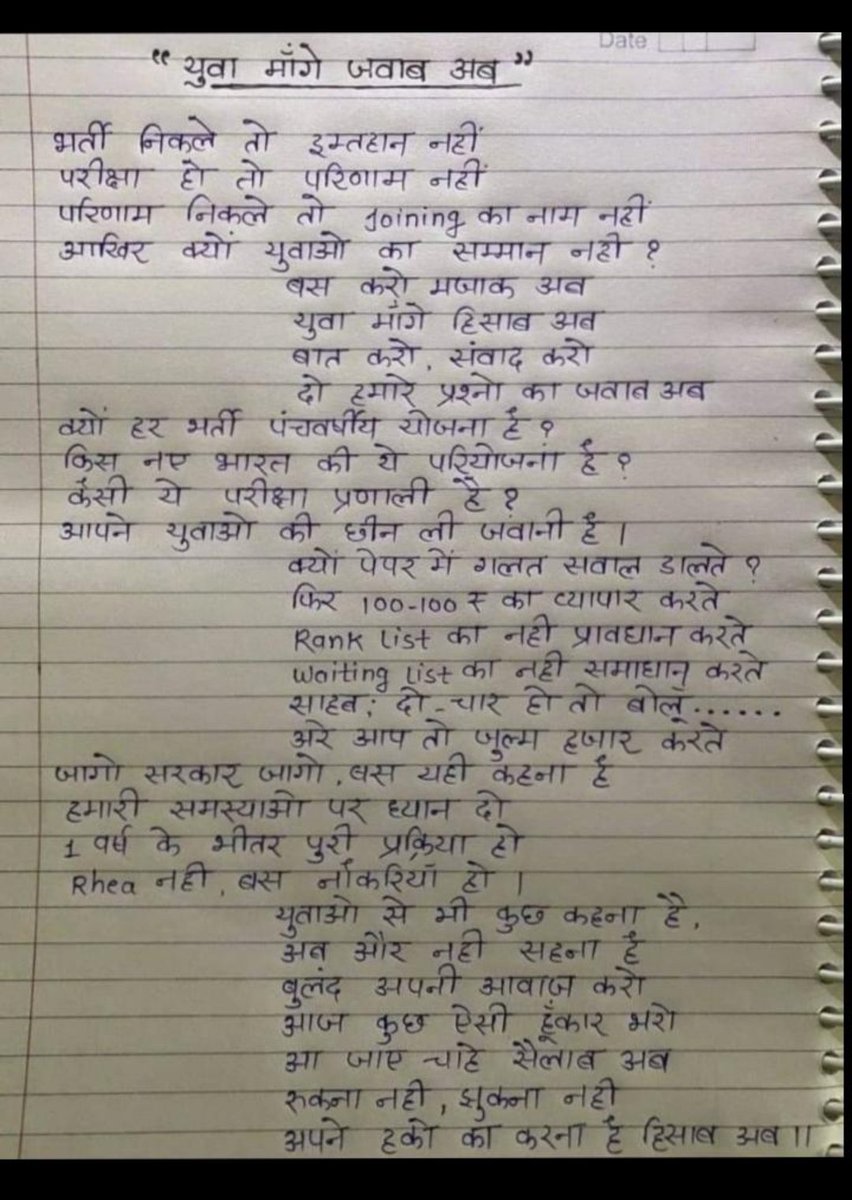 Date
“ युवा माँगे जवाब अब ”
भर्ती निकले तो इम्तहान नहीं
परीक्षा हो तो परिणाम नहीं
परिणाम निकले तो Joining का नाम नहीं
आखिर क्यों युवाओ का सम्मान नही ?
बस करो मजाक अब
युवा माँगे हिसाब अब
बात करो, संवाद करो
दो हमारे प्रश्नो का जवाब अब
क्यों हर भर्ती पंचवर्षीय योजना है ?
किस नए भारत की ये परियोजना है ?
कैसी ये परीक्षा प्रणाली है ?
आपने युवाओ की छीन ली जवानी है ।
क्यों पेपर में गलत सवाल डालते ?
फिर 100-100 ₹ का व्यापार करते
Rank List का नही प्रावधान करते
Waiting List का नही समाधान करते
साहब; दो-चार हो तो बोलूँ......
अरे आप तो जुल्म हजार करते
जागो सरकार जागो, बस यही कहना है
हमारी समस्याओ पर ध्यान दो
1 वर्ष के भीतर पुरी प्रक्रिया हो
Rhea नही, बस नौकरियाँ हो ।
युवाओ से भी कुछ कहना है,
अब और नही सहना है
बुलंद अपनी आवाज करो
आज कुछ ऐसी हूँकार भरो
आ जाए चाहे सैलाब अब
रुकना नही, झुकना नही
अपने हको का करना है हिसाब अब ।।